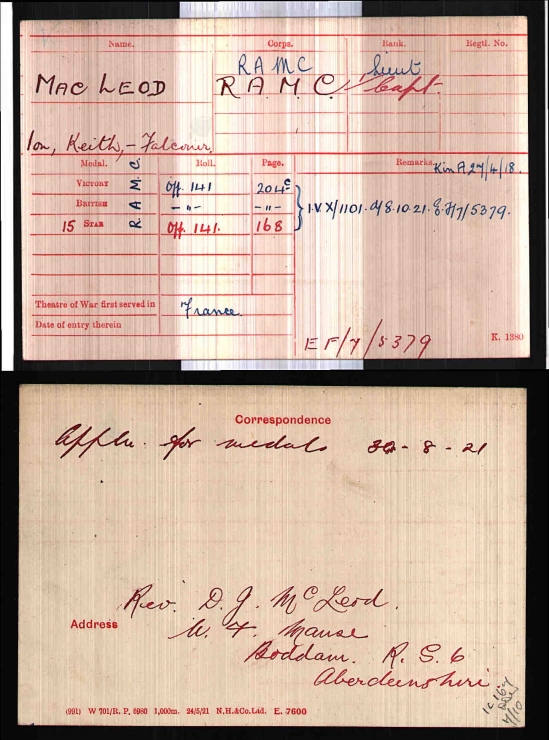 Name. Corps. Rank. Regtl. No.
R A M C Lieut
MAC LEOD R. A. M. C. Capt.
Ion, Keith, - Falconer,
Medal. Roll. Page. Remarks. K in A 27/4/18.
VICTORY R. A. M. C. Off. 141 204c
BRITISH - " - - " - I.V.X/1101. d/8.10.21. E.F/7/5379.
15 STAR Off. 141. 168
Theatre of War first served in France.
Date of entry therein
E F/7/5379 K. 1380
Correspondence
Appln. for medals 30 - 8 - 21
Rev. D. J. McLeod.
Address U. F. Manse
Boddam. R. S. O
Aberdeenshire
(991) W 701/R.P. 6980 1,000m. 24/5/21 N.H.&Co.Ltd. E. 7600